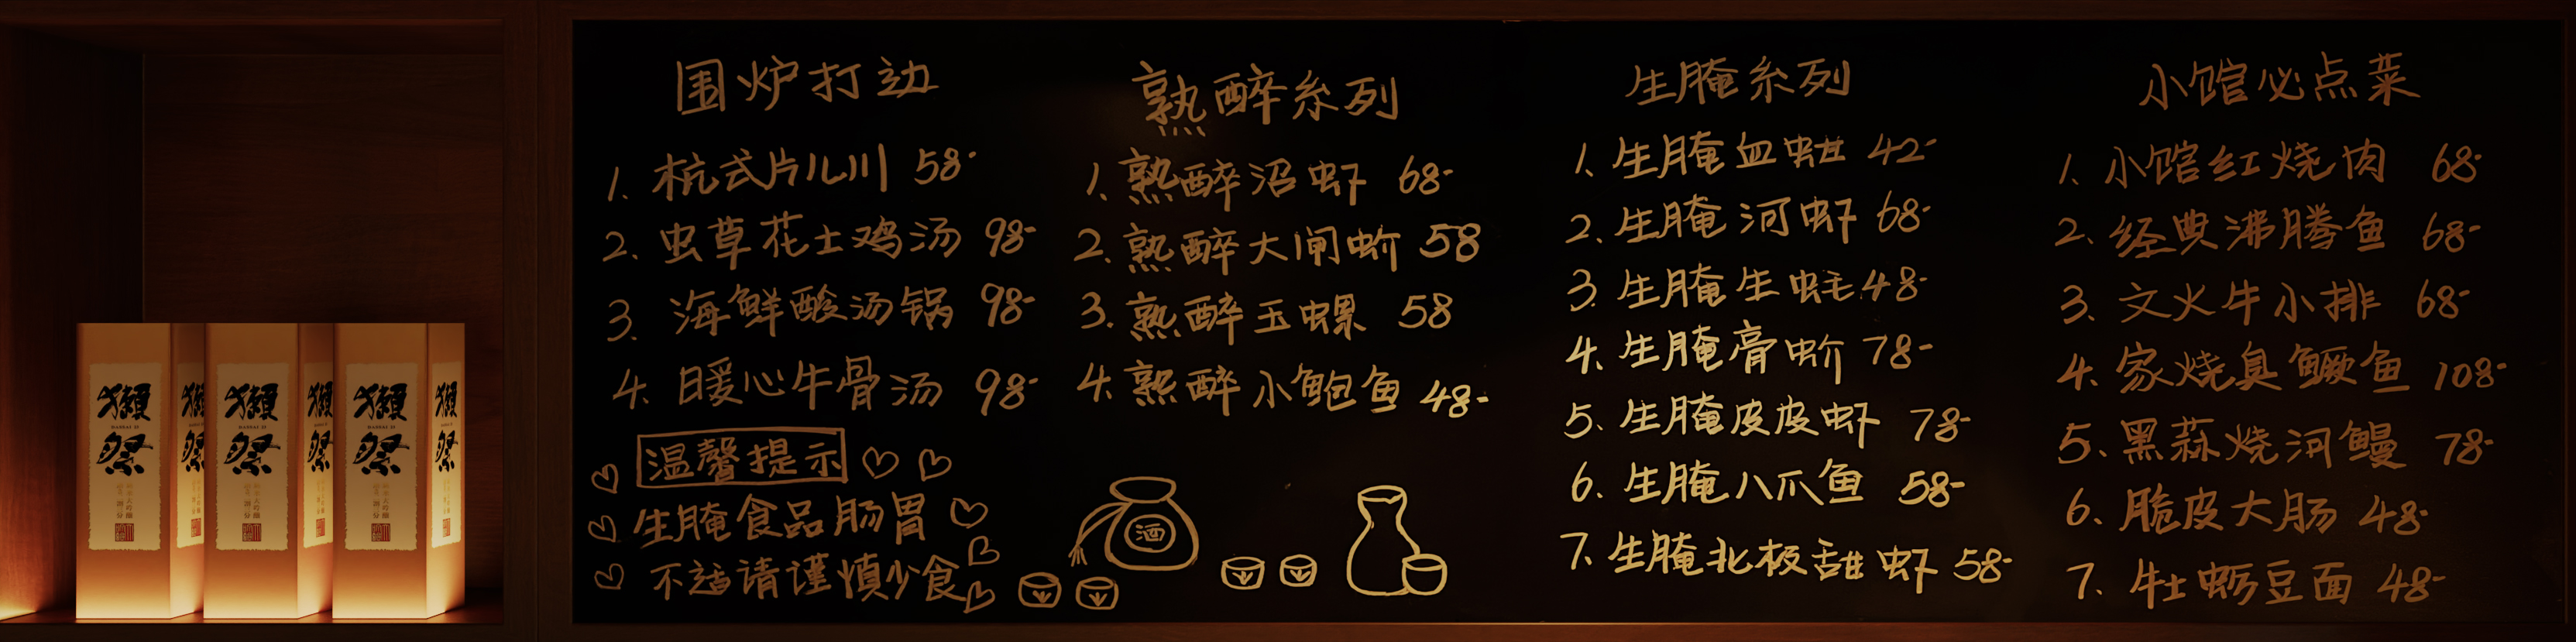 獺祭
獺祭
獺祭
獺祭
獺祭
獺祭
围炉打边
1. 杭式片儿川 58-
2. 虫草花土鸡汤 98-
3. 海鲜酸汤锅 98-
4. 暖心牛骨汤 98-
温馨提示
生腌食品肠胃
不适请谨慎少食
熟醉系列
1. 熟醉沼虾 68-
2. 熟醉大闸蚧 58
3. 熟醉玉螺 58
4. 熟醉小鲍鱼 48-
酒
生腌系列
1. 生腌血蚶 42-
2. 生腌河虾 68-
3. 生腌生蚝 48-
4. 生腌膏蚧 78-
5. 生腌皮皮虾 78-
6. 生腌八爪鱼 58-
7. 生腌北极甜虾 58-
小馆必点菜
1. 小馆红烧肉 68-
2. 经典沸腾鱼 68-
3. 文火牛小排 68-
4. 家烧臭鳜鱼 108-
5. 黑蒜烧河鳗 78-
6. 脆皮大肠 48-
7. 牡蛎豆面 48-